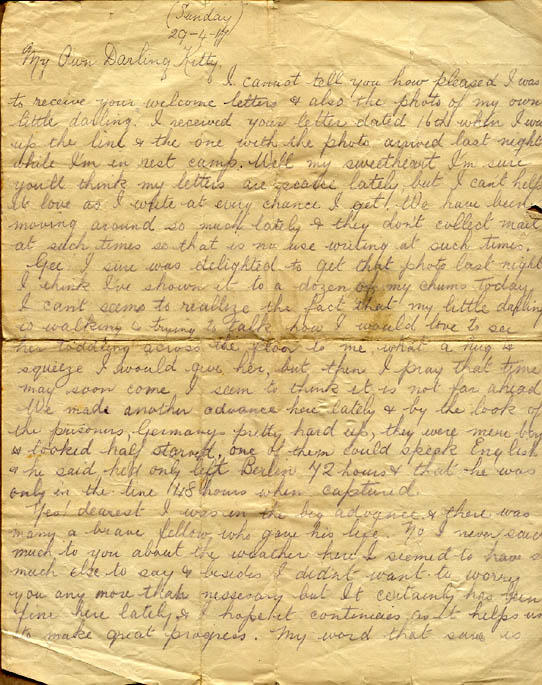 (Sunday)
29-4-17
My Own Darling Kitty,
I cannot tell you how pleased I was
to receive your welcome letters & also the photo of my own
little darling. I received your letter dated 16th when I was
up the line & the one with the photo arrived last night
while I'm in rest camp. Well my sweetheart I'm sure
you'll think my letters are scarse lately, but I can't help
it love as I write at every chance I get. We have been
moving around so much lately & they dont collect mail
at such times so that is no use writing at such times.
Gee I sure was delighted to get that photo last night
I think I've shown it to a dozen of my chums today,
I cant seems to reallize the fact that my little darling
is walking & trying to talk how I would love to see
her toddling across the floor to me, what a hug &
squeeze I would give her, but then I pray that time
may soon come I seem to think it is not far ahead
We made another advance here lately & by the look of
the prisoners, Germany pretty hard up, they were mere boys
& looked half starved, one of them could speak English
& he said he'd only left Berlin 42 hours & that he was
only in the line 48 hours when captured.
Yes dearest I was in the big advance & there was
many a brave fellow who gave his life. No I never said
much to you about the weather here I seemed to have so
much else to say & besides I didn't want to worry
you any more than nessesary but it certainly has been
fine here lately & I hope it continues as it helps us
to make great progress. My word that sure is